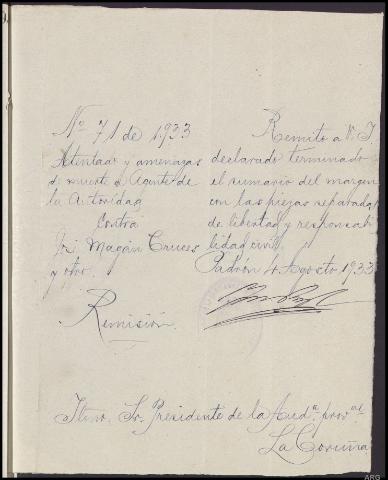 Nº 71 de 1933
Atentado y amenazas
de muerte a Agente de
la Autoridad
Contra
José Magán Cruces
y otro.
Remisión
Remito a V. I.
declarado terminado
el sumario del margen
con las piezas separadas
de libertad y responsabi
lidad civil.
Padrón 4 Agosto 1933
Iltmo. Sr. Presidente de la Audª. provªl.
La Coruña
ARG